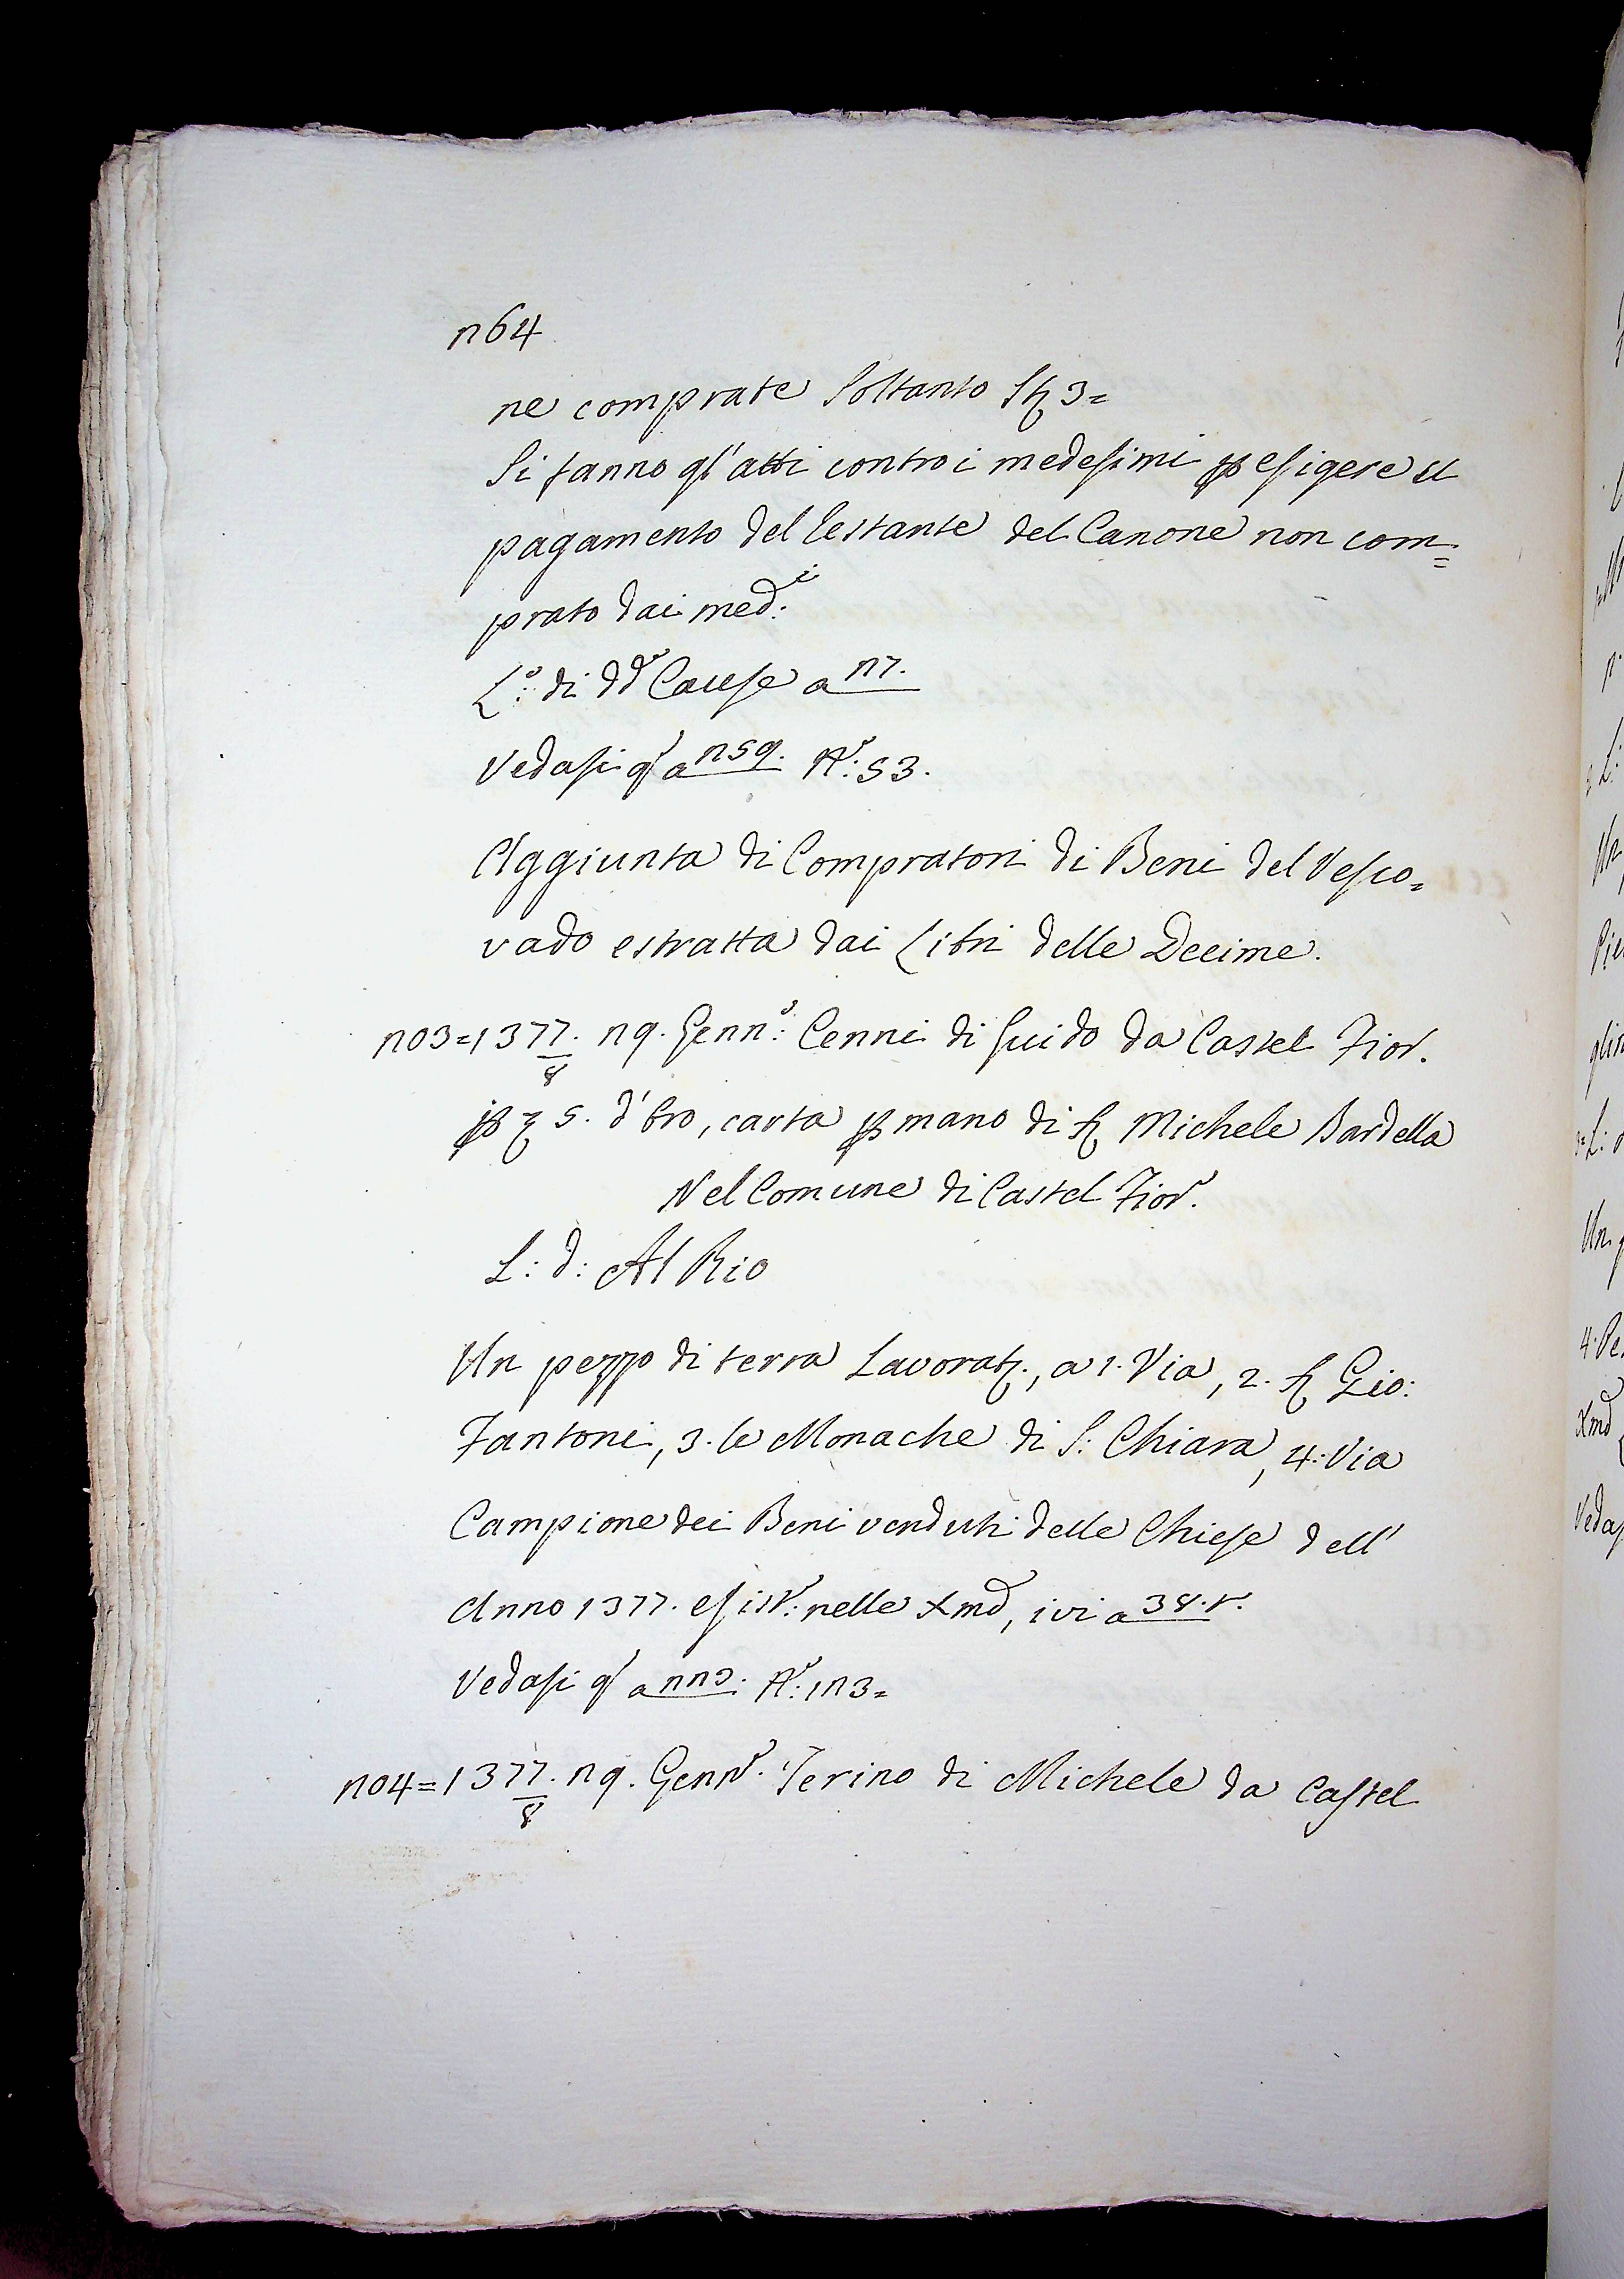 264
ne comprate Soltanto St 3=
Si fanno gl'atti contro i medesimi p esigere il
pagamento del restante del Canone non com=
prato dai med.i
L.o di dd.e Cause a 27.
Vedasi q a 259. N.o: 53.
Aggiunta di Compratori di Beni del Vesco=
vado estratta dai Libri delle Decime.
203=1377/8. 29. Genn.o: Cenni di Guido da Castel Fior.
p 5. d'Oro, carta p mano di S Michele Bardella
Nel Comune di Castel Fior.o
L: d: Al Rio
Un pezzo di terra Lavorat., a 1. Via, 2. S Gio:
Fantoni, 3. le Monache di S: Chiara, 4. Via
Campione dei Beni venduti delle Chiese dell'
Anno 1377. esist.e: nelle Xme, ivi a 38. r.
Vedasi q a 223. N.o: 123=
204=1377/8. 29. Genn.o. Terino di Michele da Castel